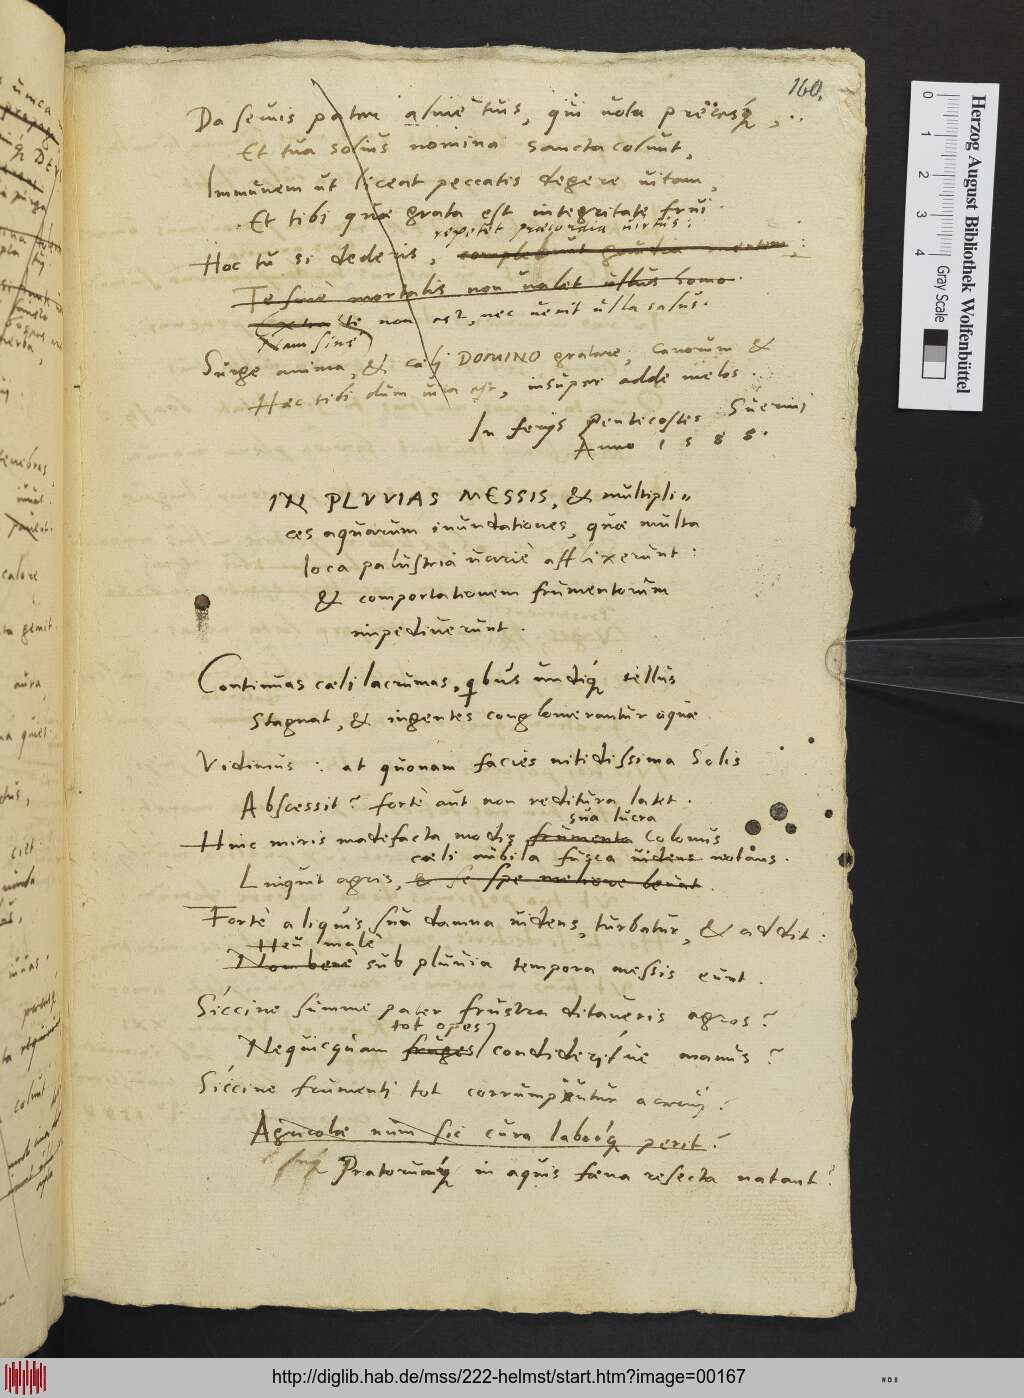 160.
Da servis pater alme tuis, qui vota precesq́,
Et tua solius nomina sancta colunt,
Immunem ut liceat peccatis degere vitam,
Et tibi quæ grata est integritate frui.
repetet præcordia virtus:
Hoc tu si dederis, complebunt gaudia mentem,
Te sine mortalis non valet ullus homo.
Extra te non est, nec venit ulla salus.
Nam sine
Surge anima, & cœli DOMINO gratare, canorum &
Hæc tibi dum vita est, insuper adde melos.
In ferijs Pentecostes Suerini
Anno 1588.
IN PLVVIAS MESSIS, & multipli„
ces aquarum inundationes, quæ multa
loca palustria variè afflixerunt:
& comportationem frumentorum
impediverunt.
Continuas cæli lacrumas, qbus undiq́ tellus
Stagnat, & ingentes conglomerantur aquæ
Vidimus: at quonam facies nitidissima Solis
Abscessit? forte aut non reditura latet.
sua lucra
Hinc miris madefacta modis frumenta Colonus
cæli nubila fusca videns notans.
Linquit agris, & se spe meliore levat.
Fortè aliquis sua damna videns, turbatur, & addit:
Heu malè
Non benè sub pluvia tempora messis eunt.
Siccine summe pater frustra ditaveris agros?
tot opes
Nequicquam fruges condiderisve manus?
Siccine frumenti tot corrumpuntur acervi?
Agricolæ num sic cura laborq́ perit?
Pratorumq́ in aquis fœna resecta natant?
Herzog August Bibliothek Wolfenbüttel
0 1 2 3 4
Gray Scale
http://diglib.hab.de/mss/222-helmst/start.htm?image=00167